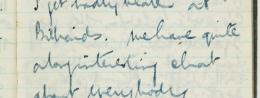 I get badly beaten at
Billiards. We have quite
a long interesting chat
about everybody